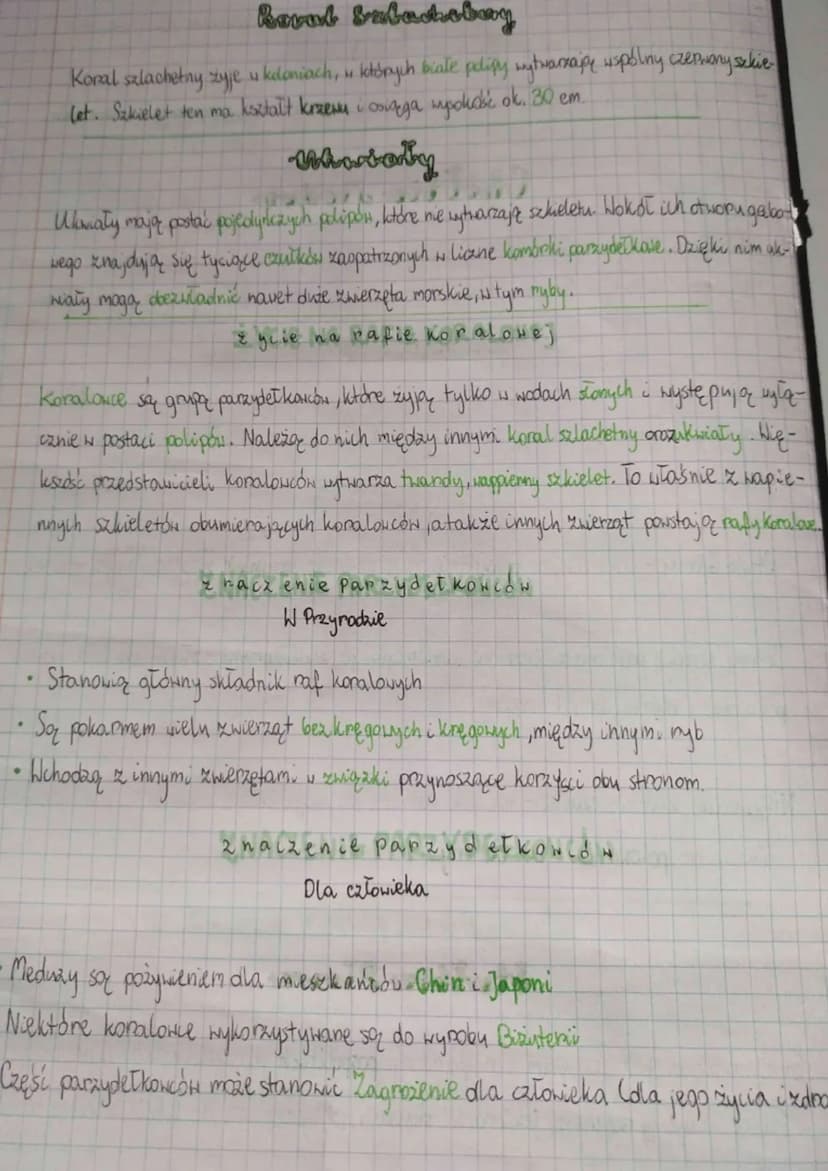 Koral szlachetny
Koral szlachetny żyje w koloniach, w których białe polipy wytwarzają wspólny czerwony szkie-
let. Szkielet ten ma kształt krzewu i osiąga wysokość ok. 30 cm.
Ukwiały
Ukwiały mają postać pojedynczych polipów, które nie wytwarzają szkieletu. Wokół ich otworu gębo-
wego znajdują się tysiące czułków zaopatrzonych w liczne komórki parzydełkowe. Dzięki nim uk-
wiały mogą obezwładnić nawet duże zwierzęta morskie, w tym ryby.
życie na rafie koralowej
Koralowce są grupą parzydełkowców, które żyją tylko w wodach słonych i występują wyłą-
cznie w postaci polipów. Należą do nich między innymi koral szlachetny oraz ukwiały. Wię-
kszość przedstawicieli koralowców wytwarza twardy, wappienny szkielet. To właśnie z wapie-
nnych szkieletów obumierających koralowców, a także innych zwierząt powstają rafy koralowe.
znaczenie parzydełkowców
W Przyrodzie
• Stanowią główny składnik raf koralowych
• Są pokarmem wielu zwierząt bezkręgowych i kręgowych, między innymi ryb
• Wchodzą z innymi zwierzętami w związki przynoszące korzyści obu stronom.
znaczenie parzydełkowców
Dla człowieka
Meduzy są pożywieniem dla mieszkańców Chin i Japoni
Niektóre koralowce wykorzystywane są do wyrobu Biżuterii
Część parzydełkowców może stanowić Zagrożenie dla człowieka (dla jego życia i zdro